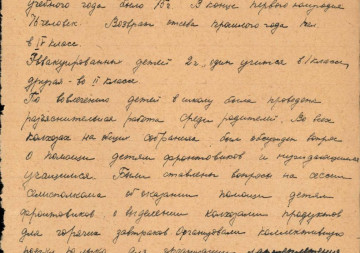 учебного года было 15г. В конце первого полугодия
16 человек. Возврат отсева прошлого года 1чел.
в IV класс.
Эвакуированных детей 2ч, один учится в I классе,
другая - во II классе.
По вовлечению детей в школу была проведена
разъяснительная работа среди родителей. Во всех
колхозах на общих собраниях был обсужден вопрос
О помощи детям фронтовиков и нуждающимся
учащимся. Были ставлены вопросы на сессии
сельисполкома об оказании помощи детям
фронтовиков и выделении колхозами продуктов
для горячих завтраков. Организовали коллективную